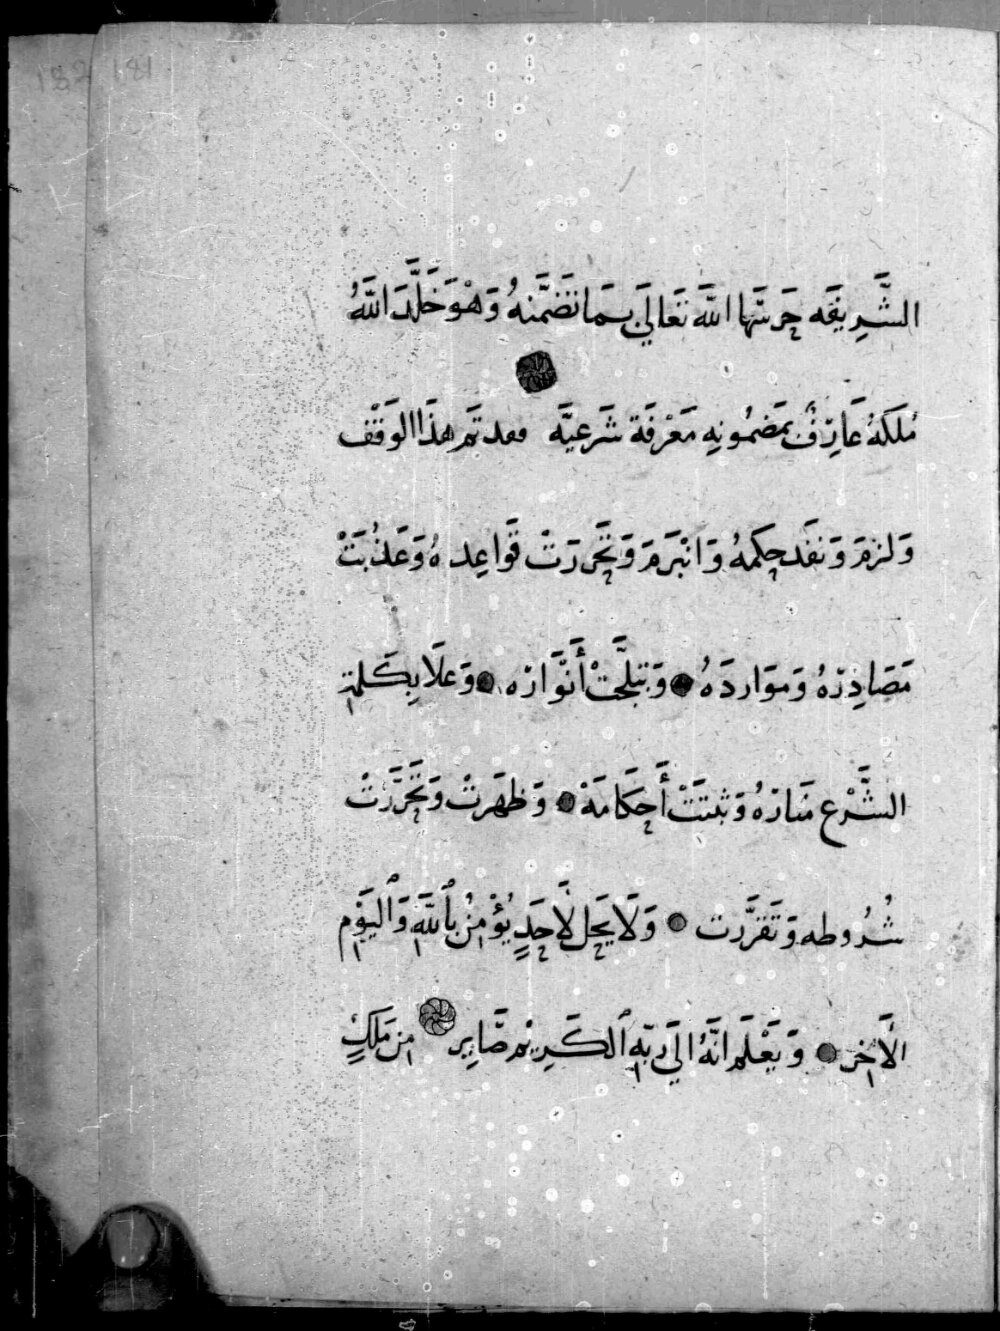 182 181
الشَّرِيفَه حَرسَهَا اللَّهَ تَعَالَي بِمَا تَضَمَّنهُ وَهْوَ خَلَّدَ اللَّهُ
مُلكَهُ عَارِفٌ بمَضمُونِهِ مَعْرفَة شَرعِيَّه فقد تَم هذَا الوَقْف
وَلزمَ وَنفَذ حِكمهُ وَانْبَرَمَ وَتَحَررَتْ قَواعِدهُ وَعَذُبَتْ
مَصَادِرهُ وَمَوَاردَهُ وَتبَلَّجَتْ أَنَّوَارَه وَعلَا بِكَلمَةِ
الشَّرْع مَنارَهُ وَثبتَتْ أَحكَامَهْ وَظهَرتْ وَتَحَرَّرَتْ
شُرُوطه وَتَقرَّرت وَلَا يَحِل لَأَحِدٍ يُؤْمِنُ بٱللَّهِ وَٱليَوْمِ
الَأخِر وَيَعْلَم انَّهُ الَي رَبِّهِ ٱلكَرِيْم صَّايِر مِن مَلكٍ